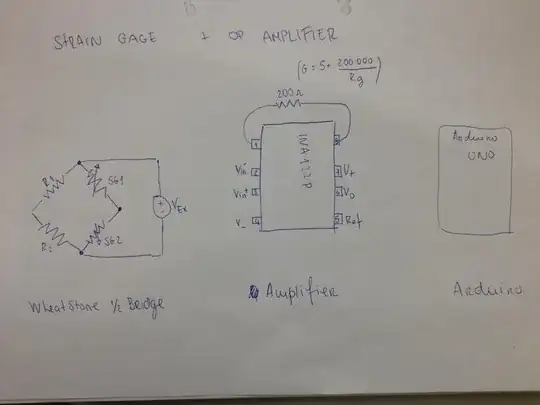 STRAIN GAGE 1 OP AMPLIFIER
(G = 5+ 200 000 / Rg)
200Ω
1 8
INA122P
Vin- 2 7 V+
Vin+ 3 6 Vo
V- 4 5 Ref
Arduino
UNO
R1 SG1
VEx
R2 SG2
WheatStone 1/2 Bridge
Amplifier
Arduino